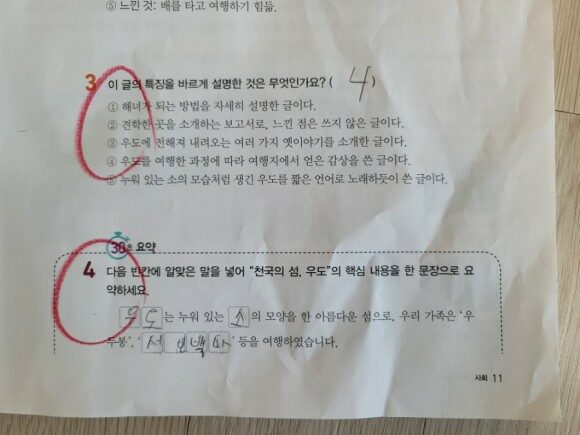 ⑤ 느낀 것: 배를 타고 여행하기 힘듦.
3 이 글의 특징을 바르게 설명한 것은 무엇인가요? ( 4 )
① 해녀가 되는 방법을 자세히 설명한 글이다.
② 견학한 곳을 소개하는 보고서로, 느낀 점은 쓰지 않은 글이다.
③ 우도에 전해져 내려오는 여러 가지 옛이야기를 소개한 글이다.
④ 우도를 여행한 과정에 따라 여행지에서 얻은 감상을 쓴 글이다.
⑤ 누워 있는 소의 모습처럼 생긴 우도를 짧은 언어로 노래하듯이 쓴 글이다.
30초 요약
4 다음 빈칸에 알맞은 말을 넣어 "천국의 섬, 우도"의 핵심 내용을 한 문장으로 요
약하세요.
우도는 누워 있는 소의 모양을 한 아름다운 섬으로, 우리 가족은 '우
두봉', '서빈백사' 등을 여행하였습니다.
사회 11